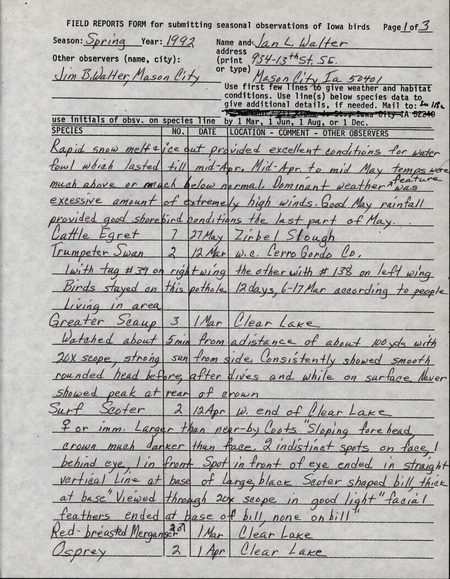 FIELD REPORTS FORM for submitting seasonal observations of Iowa birds Page 1 of 3
Season: Spring Year: 1992 Name and Jan L. Walter
address
Other observers (name, city): (print 934-13th St. SE.
or type)
Jim B. Walter, Mason City Mason City Ia 50401
Use first few lines to give weather and habitat
conditions. Use line(s) below species data to
give additional details, if needed. Mail to:
Iowa City IA 52240
use initials of obsv. on species line by 1 Mar, 1 Jun, 1 Aug, or 1 Dec.
SPECIES NO. DATE LOCATION - COMMENT - OTHER OBSERVERS
Rapid snow melt + ice out provided excellent conditions for water
fowl which lasted till mid-Apr. Mid-Apr. to mid May temps were
much above or much below normal. Dominant weather feature was
excessive amount of extremely high winds. Good May rainfall
provided good shorebird conditions the last part of May.
Cattle Egret 7 27 May Zirbel Slough
Trumpeter Swan 2 12 Mar w.c. Cerro Gordo Co.
1 with tag # 39 on right wing the other with # 138 on left wing
Birds stayed on this pothole 12 days, 6-17 Mar according to people
Living in area
Greater Scaup 3 1 Mar Clear Lake
Watched about 5 min from a distance of about 100 yds with
20x scope, strong sun from side. Consistently showed smooth
rounded head before, after dives and while on surface. Never
showed peak at rear of crown
Surf Scoter 2 12 Apr w. end of Clear Lake
♀ or imm. Larger than near-by Coots "Sloping forehead,
crown much darker than face, 2 indistinct spots on face, 1
behind eye, 1 in front Spot in front of eye ended in straight
vertical Line at base of large, black Scoter shaped bill, thick
at base" Viewed through 20x scope in good light "facial
feathers ended at base of bill, none on bill"
Red-breasted Merganser 1 Mar Clear Lake
Osprey 2 1 Apr Clear Lake